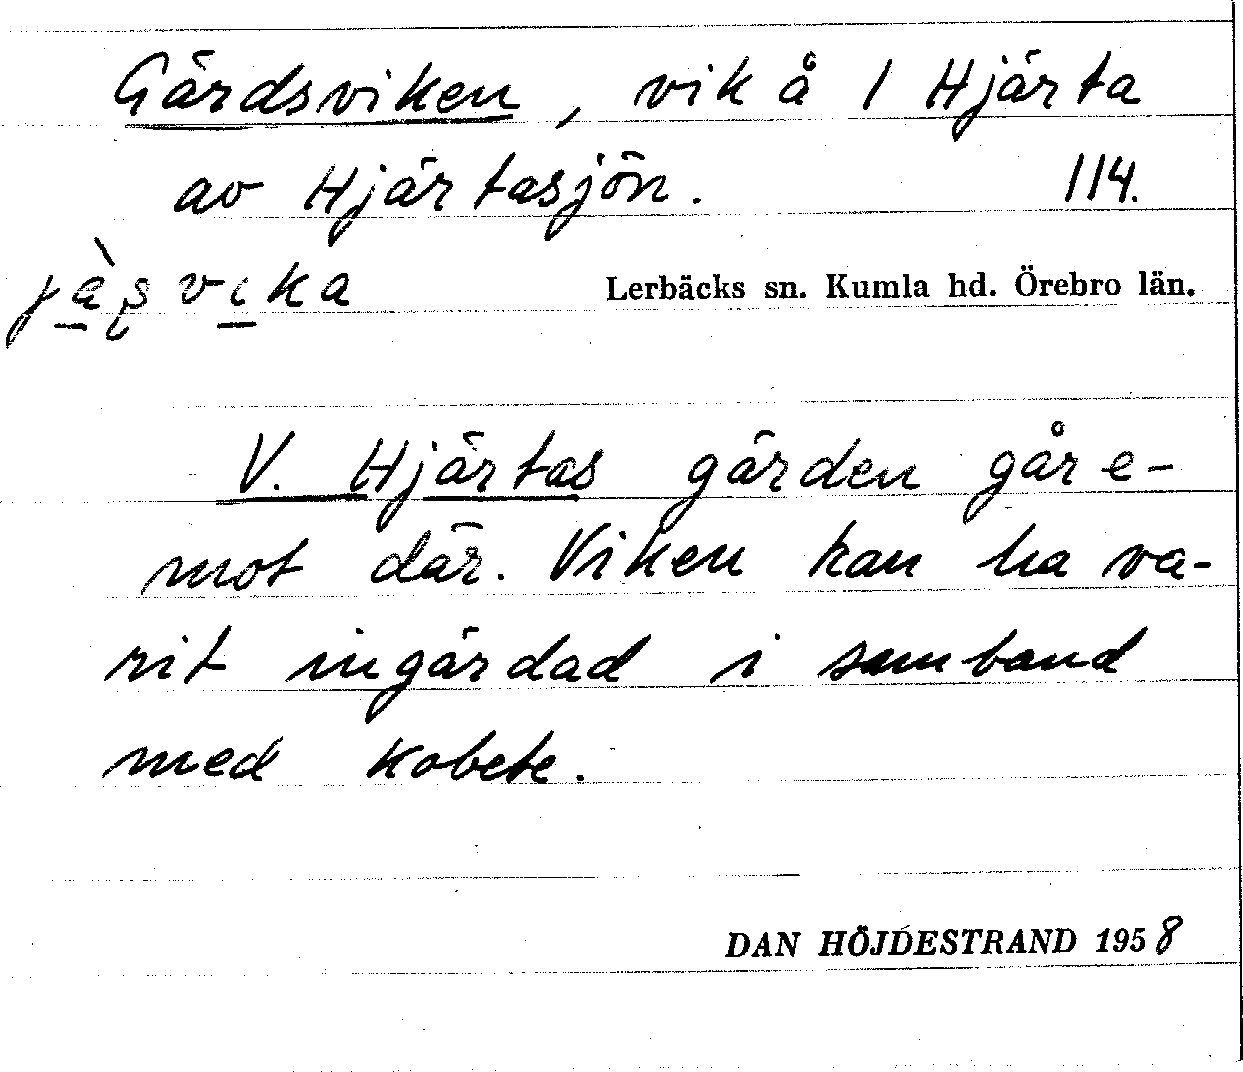 Gärdsviken, vik å 1 Hjärta
av Hjärtasjön. 114.
Lerbäcks sn. Kumla hd. Örebro län.
V. Hjärtas gärden går e-
mot där. Viken kan ha va-
rit ingärdad i samband
med kobete.
DAN HÖJDESTRAND 1958